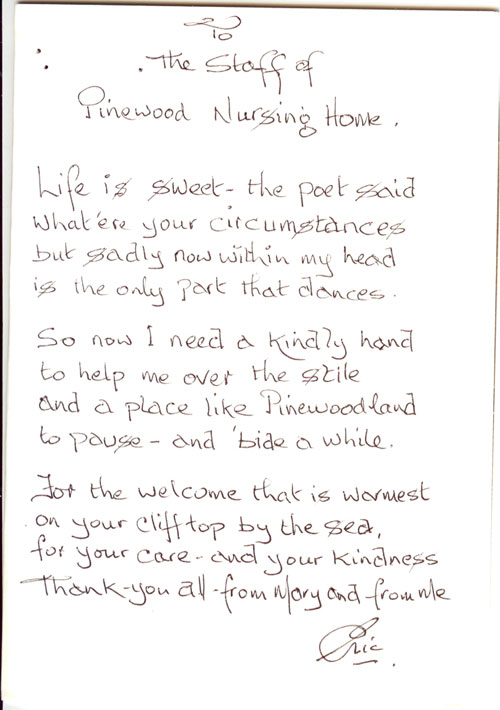 To
The Staff of
Pinewood Nursing Home.
Life is sweet - the poet said
what'ere your circumstances
but sadly now within my head
is the only part that dances.
So now I need a kindly hand
to help me over the stile
and a place like Pinewoodland
to pause - and 'bide a while.
For the welcome that is warmest
on your cliff top by the sea,
for your care - and your kindness
Thank-you all - from Mary and from Me
Eric